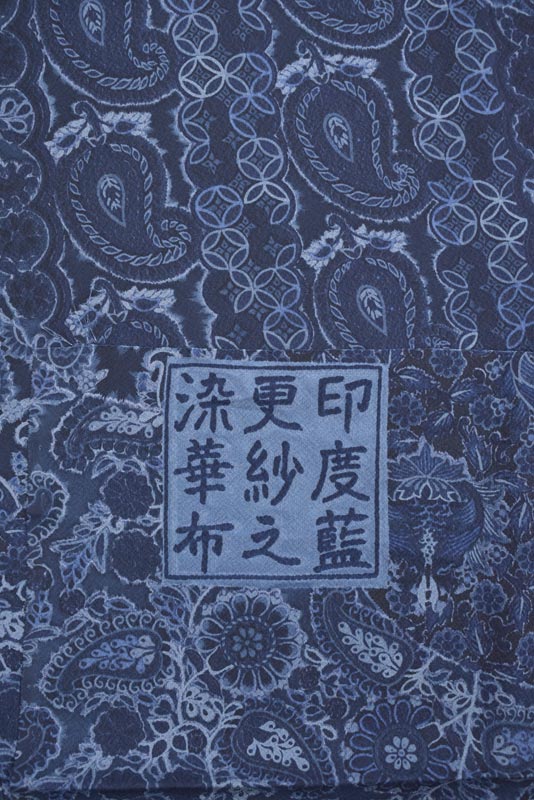 印度藍
更紗之
染華布